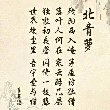 北青萝
残阳西入崦 茅屋访孤僧
落叶人何在 寒云路几层
独敲初夜磬 闲倚一枝藤
世界微尘里 吾宁爱与憎